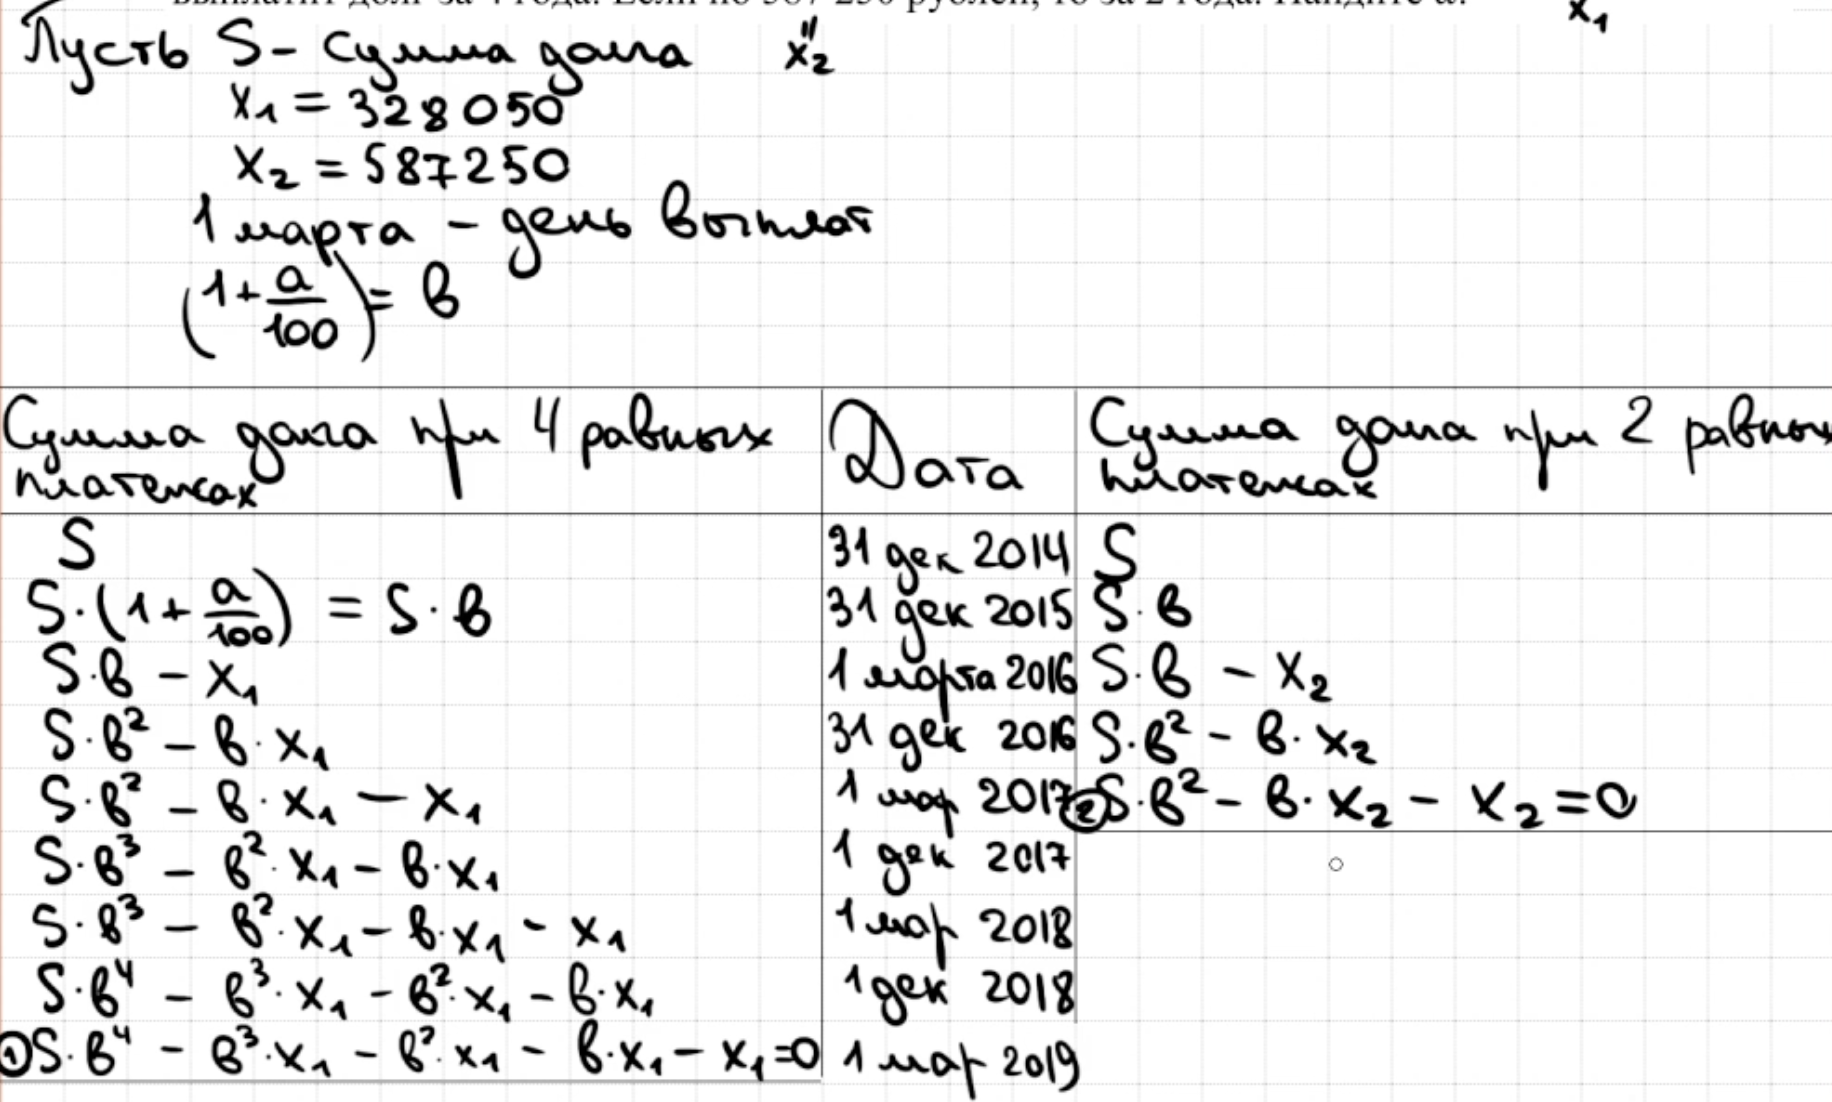 выплатит долг за 4 года. Если по 587 250 рублей, то за 2 года. Найдите a.
x₁
Пусть S - сумма долга
"
x₂
x₁ = 328050
x₂ = 587250
1 марта - день выплат
(1 + a/100) = в
Сумма долга при 4 равных платежах
Дата
Сумма долга при 2 равных платежах
S
31 дек 2014
S
S·(1 + a/100) = S·в
31 дек 2015
S·в
S·в - x₁
1 марта 2016
S·в - x₂
S·в² - в·x₁
31 дек 2016
S·в² - в·x₂
S·в² - в·x₁ - x₁
1 мар 2017
② S·в² - в·x₂ - x₂ = 0
S·в³ - в²·x₁ - в·x₁
1 дек 2017
S·в³ - в²·x₁ - в·x₁ - x₁
1 мар 2018
S·в⁴ - в³·x₁ - в²·x₁ - в·x₁
1 дек 2018
① S·в⁴ - в³·x₁ - в²·x₁ - в·x₁ - x₁ = 0
1 мар 2019